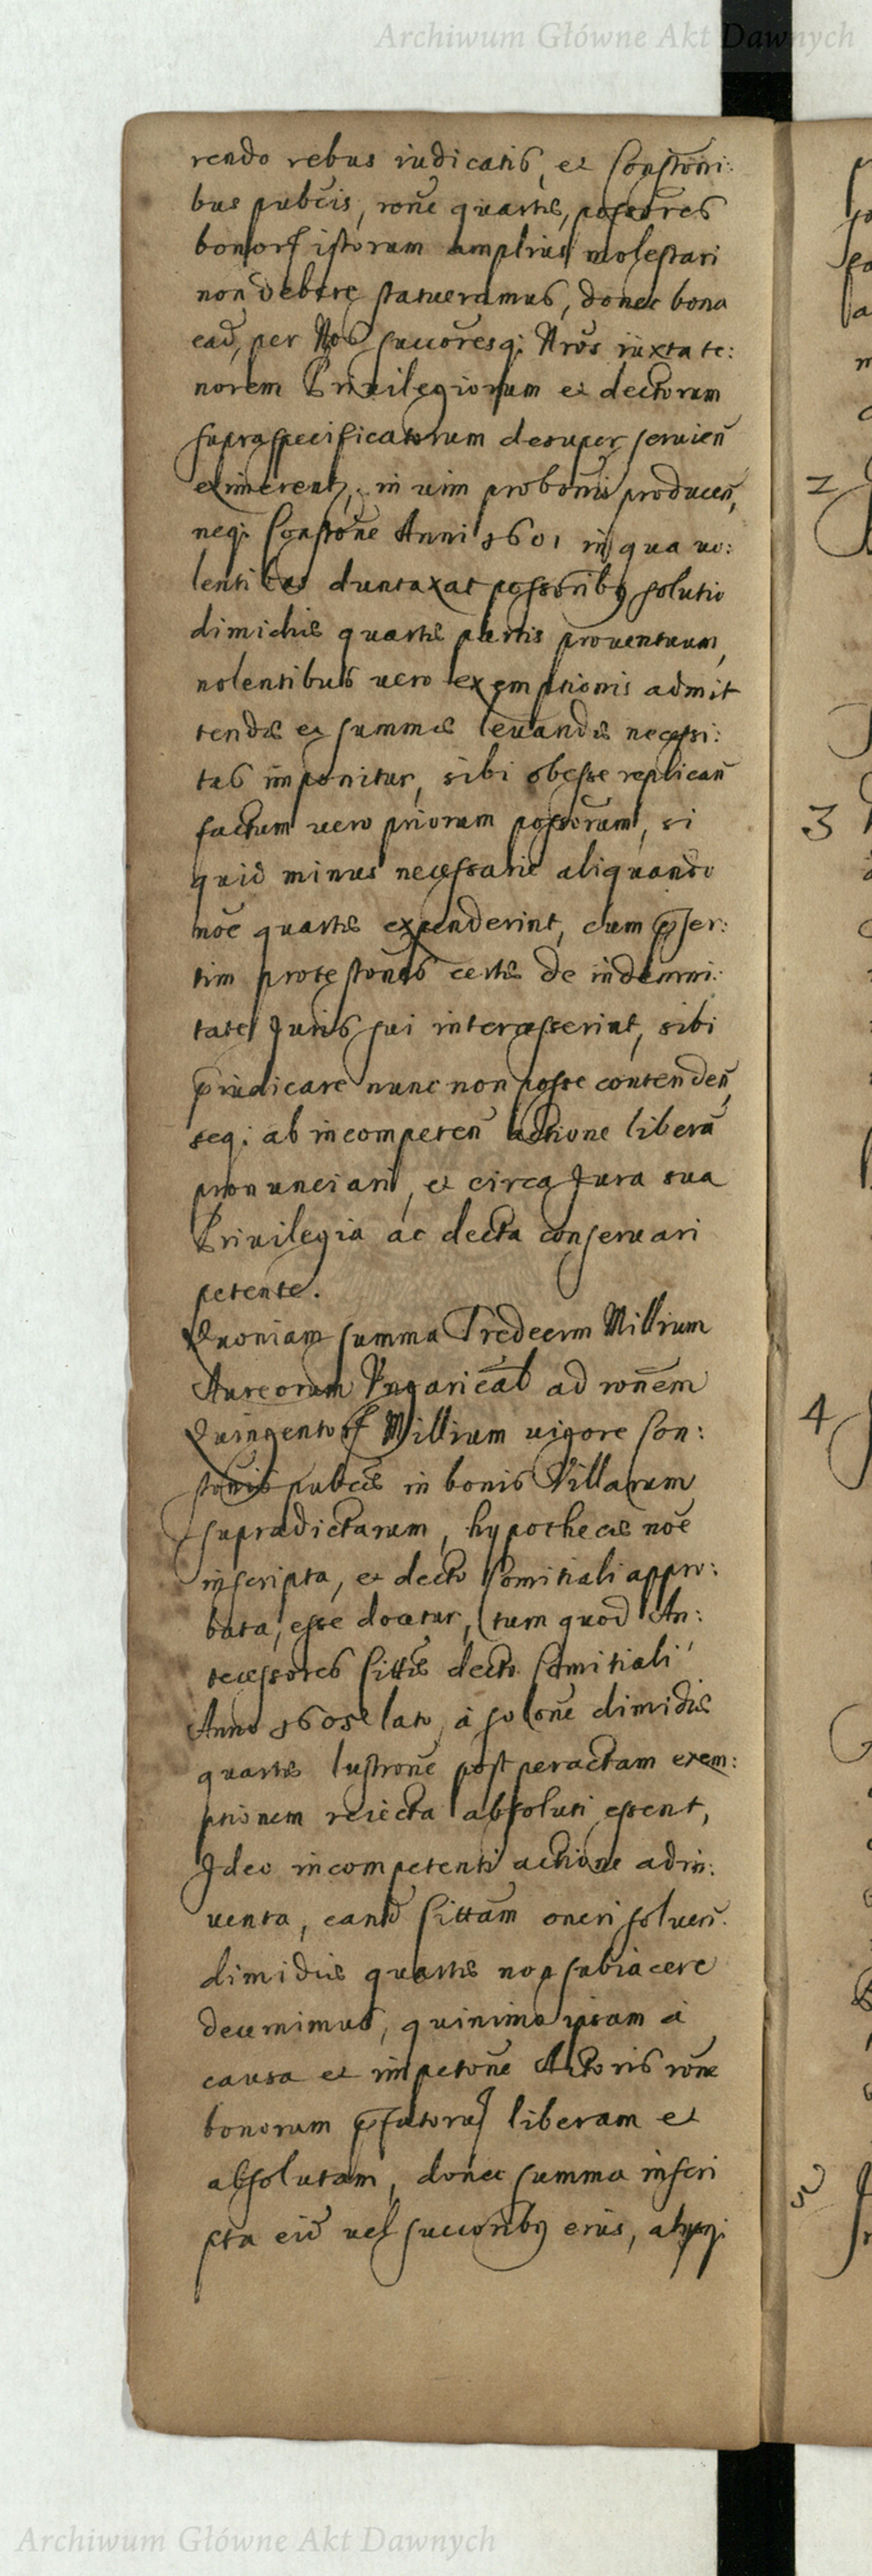 Archiwum Główne Akt Dawnych
rendo rebus iudicatis, et Constoni:
bus pubcis, rone quartæ, possores
bonor istorum amplius molestari
non debere statueramus, donec bona
ead, per Nos succoresq; Nros iuxta te:
norem Privilegiorum et dectorum
supraspecificatorum desuper servien
eximerent, in vim probonis producen,
neq; Constone Anni 1601 in qua vo:
lentibus duntaxat possoribus solutio
dimidiæ quartæ partis proventuum,
nolentibus vero exemptionis admit
tendæ et summæ levandæ necessi:
tas imponitur, sibi obesse replican
factum vero priorum possorum, si
quid minus necessarie aliquando
noe quartæ expenderint, cum præser:
tim protestones certæ de indemni:
tate Juris sui interesserint, sibi
præiudicare nunc non posse contenden,
seq; ab incompeten actione libera
pronunciari, et circa Jura sua
Privilegia ac decta conservari
petente.
Quoniam summa Tredecim Millium
Aureorum Ungarical ad ronem
Quingentor Millium vigore Con:
stonis pubcæ in bonis Villarum
supradictarum, hypothecæ noe
inscripta, et decto Comitiali appro:
bata, esse docetur, tum quod An:
tecessores Cittæ decto Comitiali
Anno 1605 lato, à solone dimidiæ
quartæ lustrone post peractam exem:
ptionem reiecta absoluti essent,
Ideo incompetenti actione adin:
venta, eand Cittam oneri solven.
dimidiæ quartæ non subiacere
decernimus, quinimo ipsam à
causa et impetone Actoris rone
bonorum præfator liberam et
absolutam, donec summa inscri
pta eid vel succoribus eius, absq;
2
3
4
5
Archiwum Główne Akt Dawnych